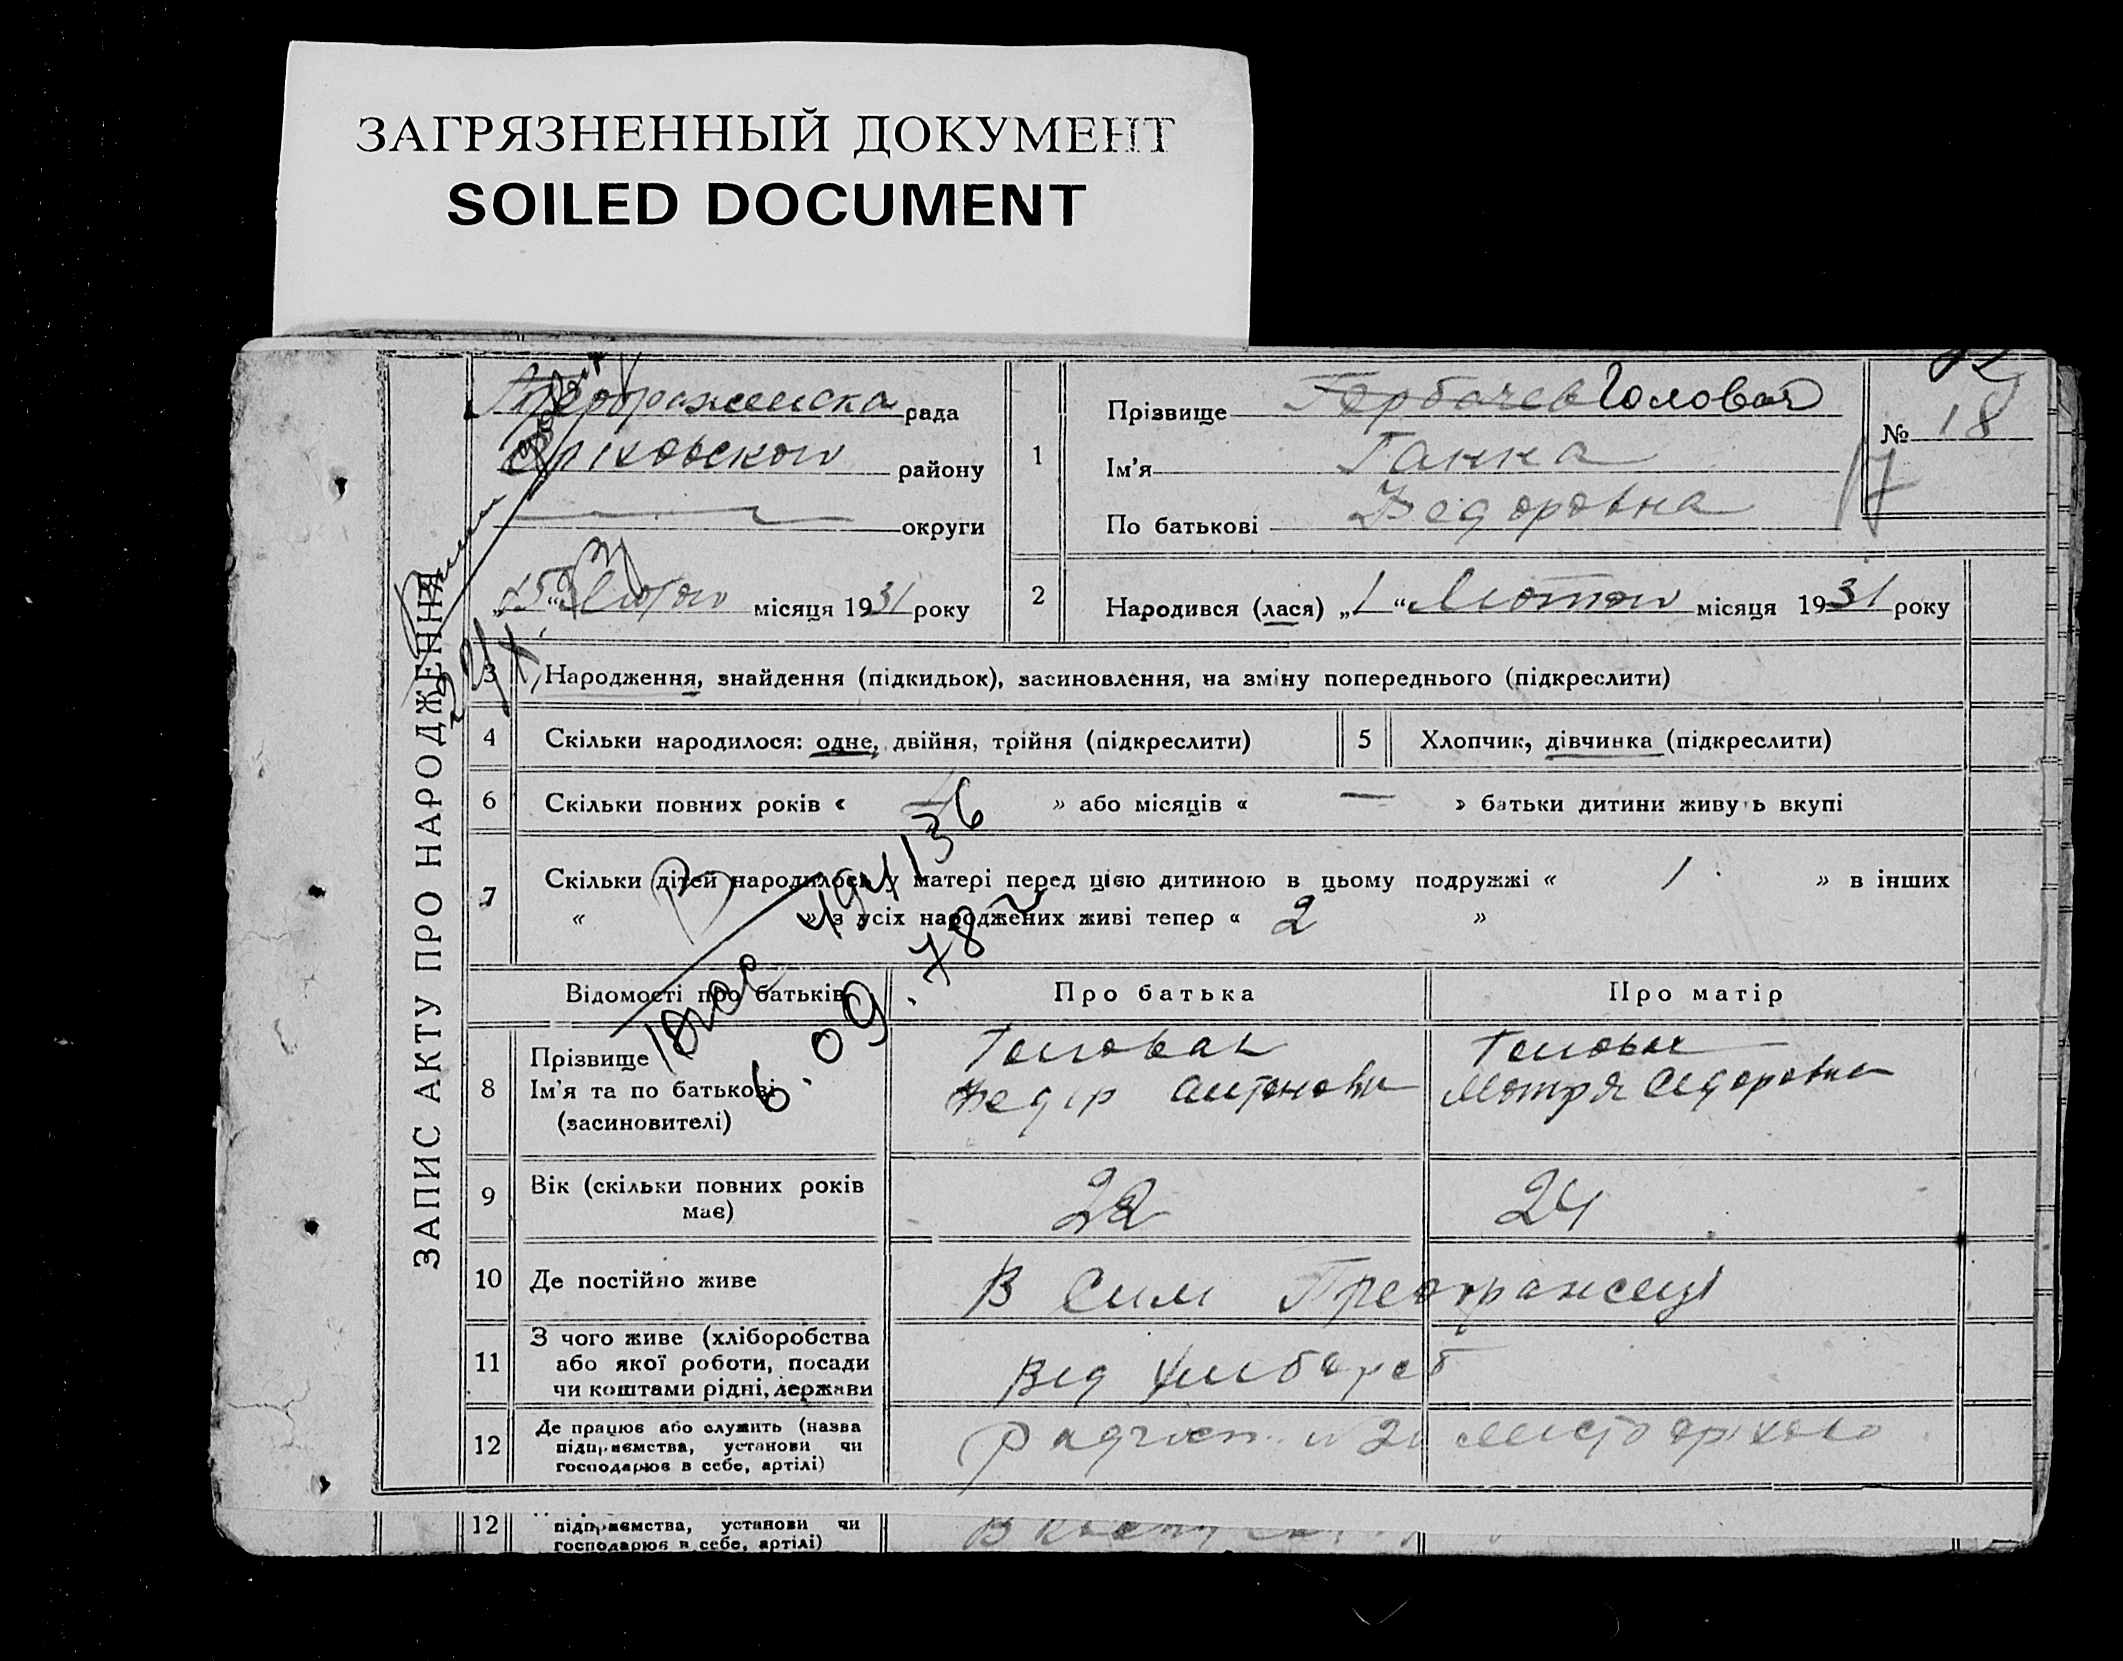 ЗАГРЯЗНЕННЫЙ ДОКУМЕНТ
SOILED DOCUMENT
ЗАПИС АКТУ ПРО НАРОДЖЕННЯ
Преображенска рада
Оріховского району
округи
„15“ Лютого місяця 1931 року
1
Прізвище Горбачев Головач
Ім’я Ганна
По батькові Федоровна
№ 18
17
2
Народився (лася) „1“ Лютого місяця 1931 року
3 Народження, знайдення (підкидьок), засиновлення, на зміну попереднього (підкреслити)
4 Скільки народилося: одне, двійня, трійня (підкреслити)
5 Хлопчик, дівчинка (підкреслити)
6 Скільки повних років « 6 » або місяців « — » батьки дитини живуть вкупі
7 Скільки дітей народилось у матері перед цією дитиною в цьому подружжі « 1 » в інших
« » з усіх народжених живі тепер « 2 »
6.09.78
Відомості про батьків
Про батька
Про матір
8 Прізвище
Ім’я та по батькові
(засиновителі)
Головач
Федір Антонович
Головач
Мотря Сидоровна
9 Вік (скільки повних років
має)
28
24
10 Де постійно живе
В Преображенці
11 З чого живе (хліборобства
або якої роботи, посади
чи коштами рідні, держави
Від
12 Де працює або служить (назва
підприємства, установи чи
господарює в себе, артілі)
Радгосп місто Оріхово
12 підприємства, установи чи
господарює в себе, артілі)